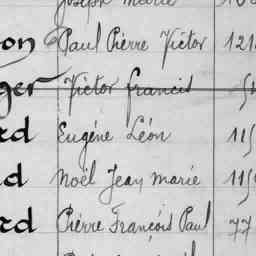 Joseph Marie
on Paul Pierre Victor 121
ger Victor francis
rd Eugéne Léon 115
d Noël Jean marie 115
rd Piérre François Paul 77